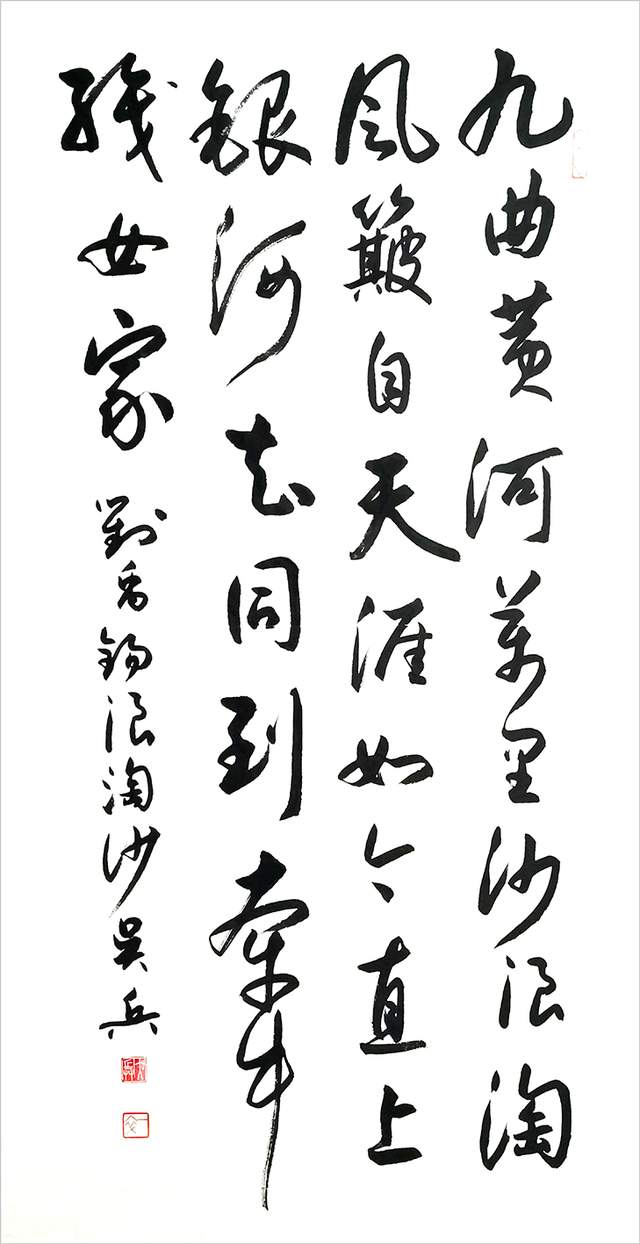 九曲黄河萬里沙浪淘
风簸自天涯如今直上
銀河去同到牽牛
織女家
劉禹錫浪淘沙吴兵